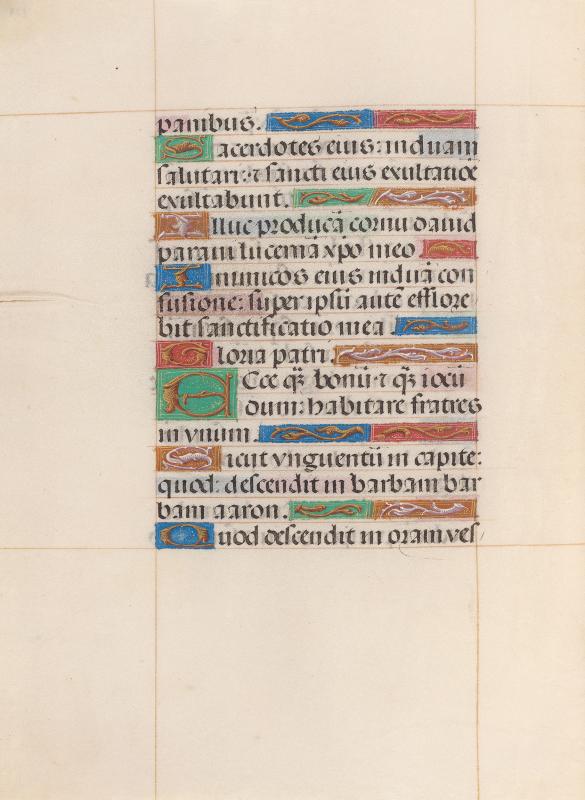 panibus.
Sacerdotes eius: induam
salutari: ⁊ sancti eius exultatiōe
exultabunt.
Illuc producā cornu dauid
paraui lucernā xpo meo
Inimicos eius induā con
fusione: super ipsū autē efflore
bit sanctificatio mea.
Gloria patri.
Ecce qz̄ bonū ⁊ qz̄ iocū
dum: habitare fratres
in vnum.
Sicut vnguentū in capite:
quod: descendit in barbam bar
bam aaron.
Quod descendit in oram ves